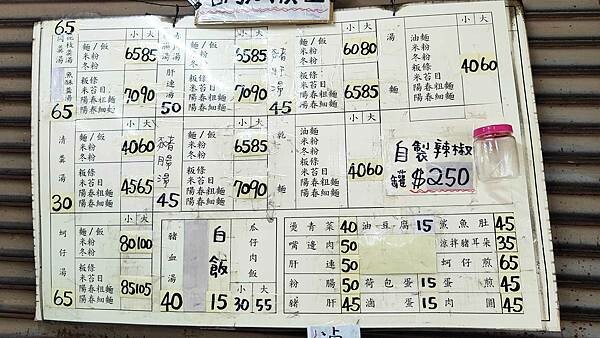 65
同羹湯
花枝羹湯
小 大
麵/飯
米粉
冬粉
6585
魚酥羹湯
65
板條
米苔目
陽春粗麵
陽春細麵
7090
小 大
麵/飯
米粉
冬粉
6585
肝連湯
50
板條
米苔目
陽春粗麵
陽春細麵
7090
豬肝湯
45
小 大
麵/飯
米粉
冬粉
6080
板條
米苔目
陽春粗麵
陽春細麵
6585
湯麵
小 大
油麵
米粉
冬粉
板條
米苔目
陽春粗麵
陽春細麵
4060
清羹湯
30
小 大
麵/飯
米粉
冬粉
4060
板條
米苔目
陽春粗麵
陽春細麵
4565
豬腸湯
45
小 大
麵/飯
米粉
冬粉
6585
板條
米苔目
陽春粗麵
陽春細麵
7090
乾麵
小 大
油麵
米粉
冬粉
板條
米苔目
陽春粗麵
陽春細麵
4060
自製辣椒
罐 $250
蚵仔湯
65
小 大
麵/飯
米粉
冬粉
80100
板條
米苔目
陽春粗麵
陽春細麵
85105
豬血湯
40
白飯
15
瓜仔肉飯
小 大
30 55
燙青菜 40 油豆腐 15 熏魚肚 45
嘴邊肉 50 涼拌豬耳朵 35
肝連 50 蚵仔煎 65
粉腸 50 荷包蛋 15 蛋煎 45
豬肝 45 滷蛋 15 肉圓 45